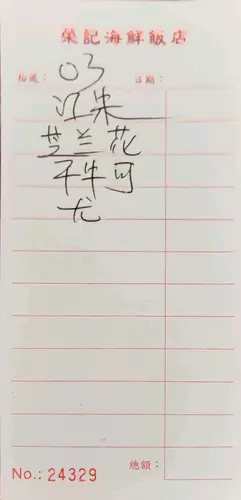 榮記海鮮飯店
枱號：03 日期：
江朱
芝兰花
干牛可
尤
總額：
No.: 24329